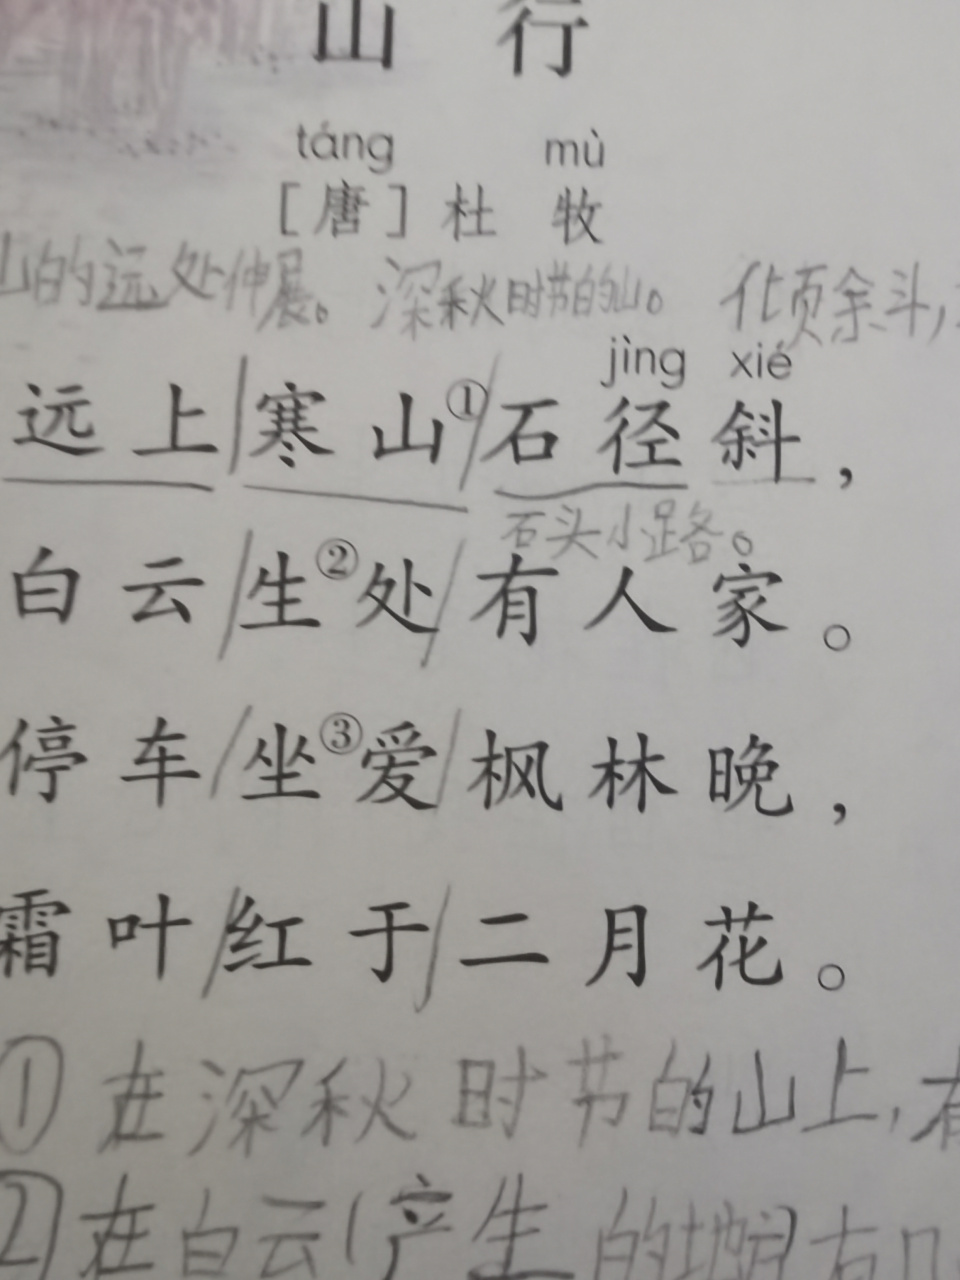 山行
táng mù
[唐]杜牧
山的远处伸展。 深秋时节的山。 余斗,
jìng xié
远上寒山①石径斜，
石头小路。
白云生②处有人家。
停车坐③爱枫林晚，
霜叶红于二月花。
① 在深秋时节的山上，有
② 在白云(产生的地